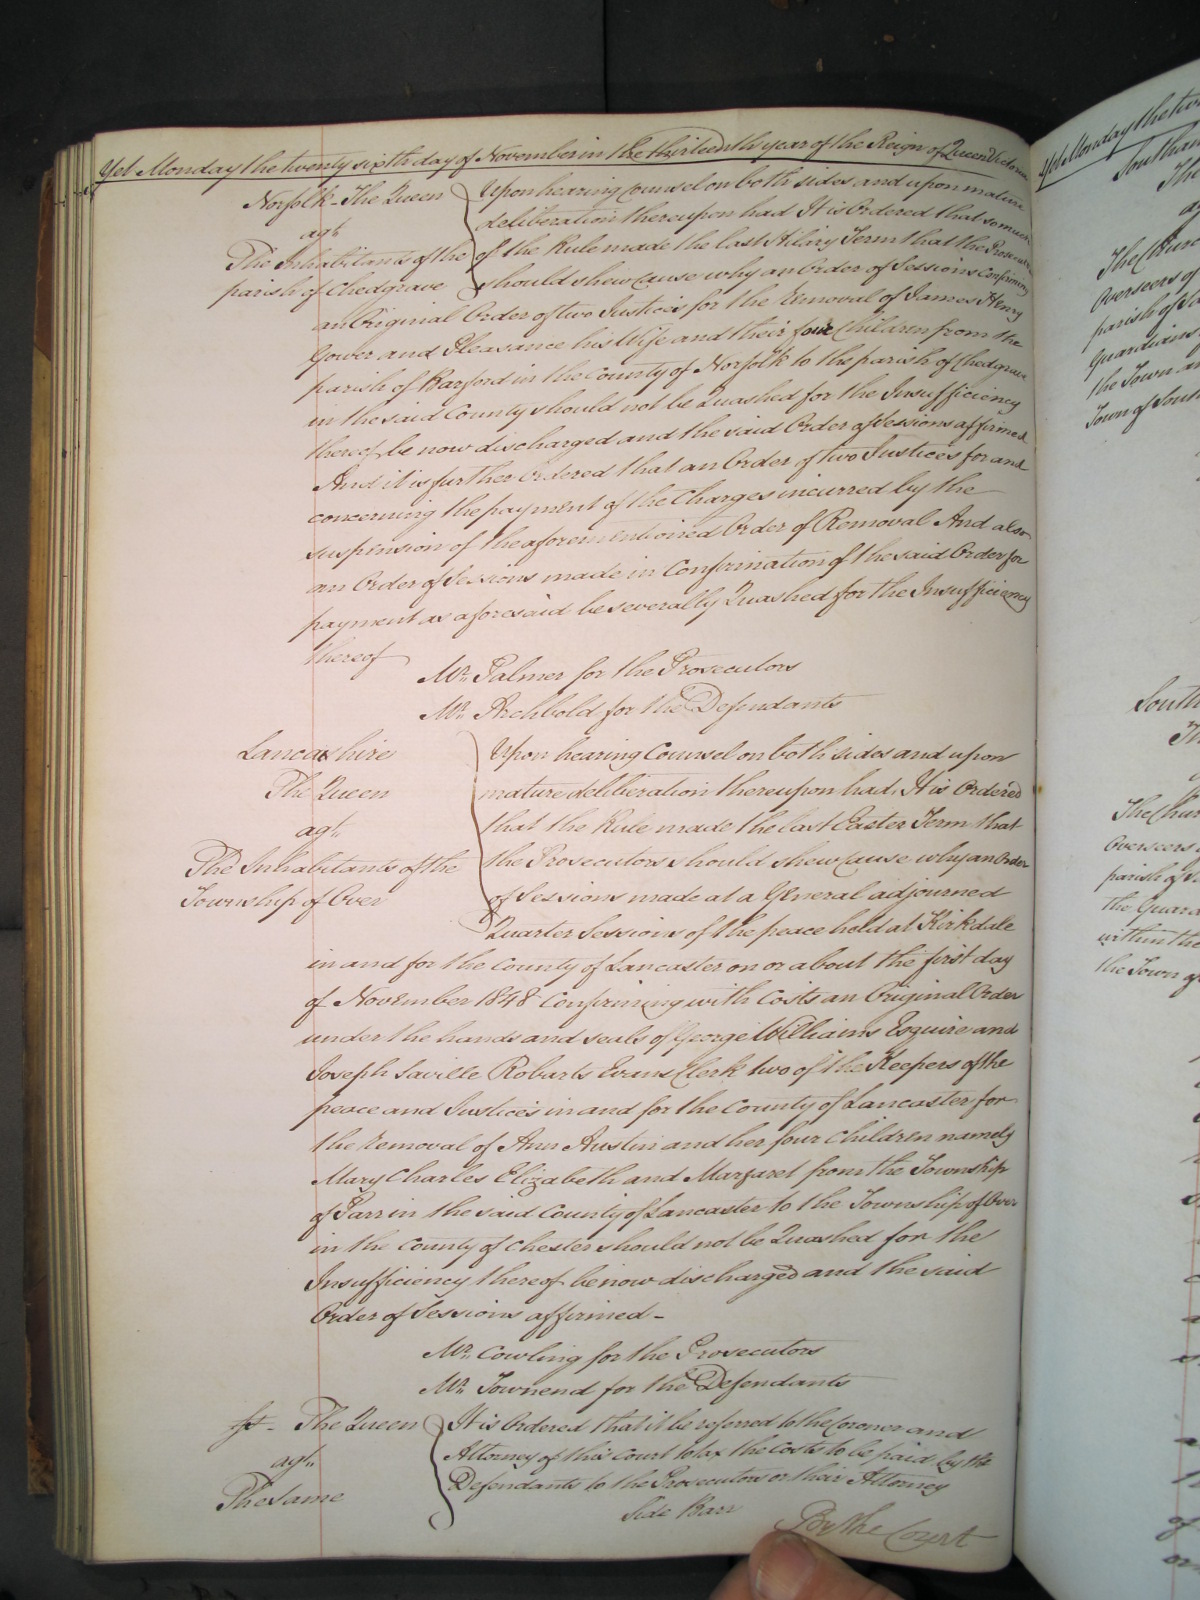 Yet Monday the twenty sixth day of November in the thirteenth year of the Reign of Queen Victoria
Norfolk - The Queen
agt.
The Inhabitants of the
parish of Chedgrave
Upon hearing Counsel on both sides and upon mature
deliberation thereupon had It is Ordered that so much
of the Rule made the last Hilary Term that the Prosecutors
should shew cause why an Order of Sessions Confirming
an Original Order of two Justices for the removal of James Henry
Gower and Pleasance his Wife and their four Children from the
parish of Barford in the County of Norfolk to the parish of Chedgrave
in the said County should not be Quashed for the Insufficiency
thereof be now discharged and the said Order of Sessions affirmed
And it is further Ordered that an Order of two Justices for and
concerning the payment of the Charges incurred by the
suspension of the aforementioned Order of Removal And also
an Order of Sessions made in Confirmation of the said Order for
payment as aforesaid be severally Quashed for the Insufficiency
thereof
Mr. Palmer for the Prosecutors
Mr. Archbold for the Defendants
Lancashire
The Queen
agt.
The Inhabitants of the
Township of Over
Upon hearing Counsel on both sides and upon
mature deliberation thereupon had. It is Ordered
that the Rule made the last Easter Term that
the Prosecutors should shew cause why an Order
of Sessions made at a General adjourned
Quarter Sessions of the peace held at Kirkdale
in and for the County of Lancaster on or about the first day
of November 1848 Confirming with Costs an Original Order
under the hands and seals of George Williams Esquire and
Joseph Saville Robarts Evans Clerk two of the Keepers of the
peace and Justices in and for the County of Lancaster for
the removal of Ann Austin and her four Children namely
Mary Charles Elizabeth and Margaret from the Township
of Parr in the said County of Lancaster to the Township of Over
in the County of Chester should not be Quashed for the
Insufficiency thereof be now discharged and the said
Order of Sessions affirmed -
Mr. Cowling for the Prosecutors
Mr. Townend for the Defendants
The Queen
agt.
The Same
It is Ordered that it be referred to the Coroner and
Attorney of this Court to tax the Costs to be paid by the
Defendants to the Prosecutors or their Attorney
Side Barr
By the Court
Yet Monday the
Southam
The
The
Overseers of
parish of
Guardians
the Town an
Town of South
South
The
The Chur
Overseers
parish of
the Guard
within the
the Town of